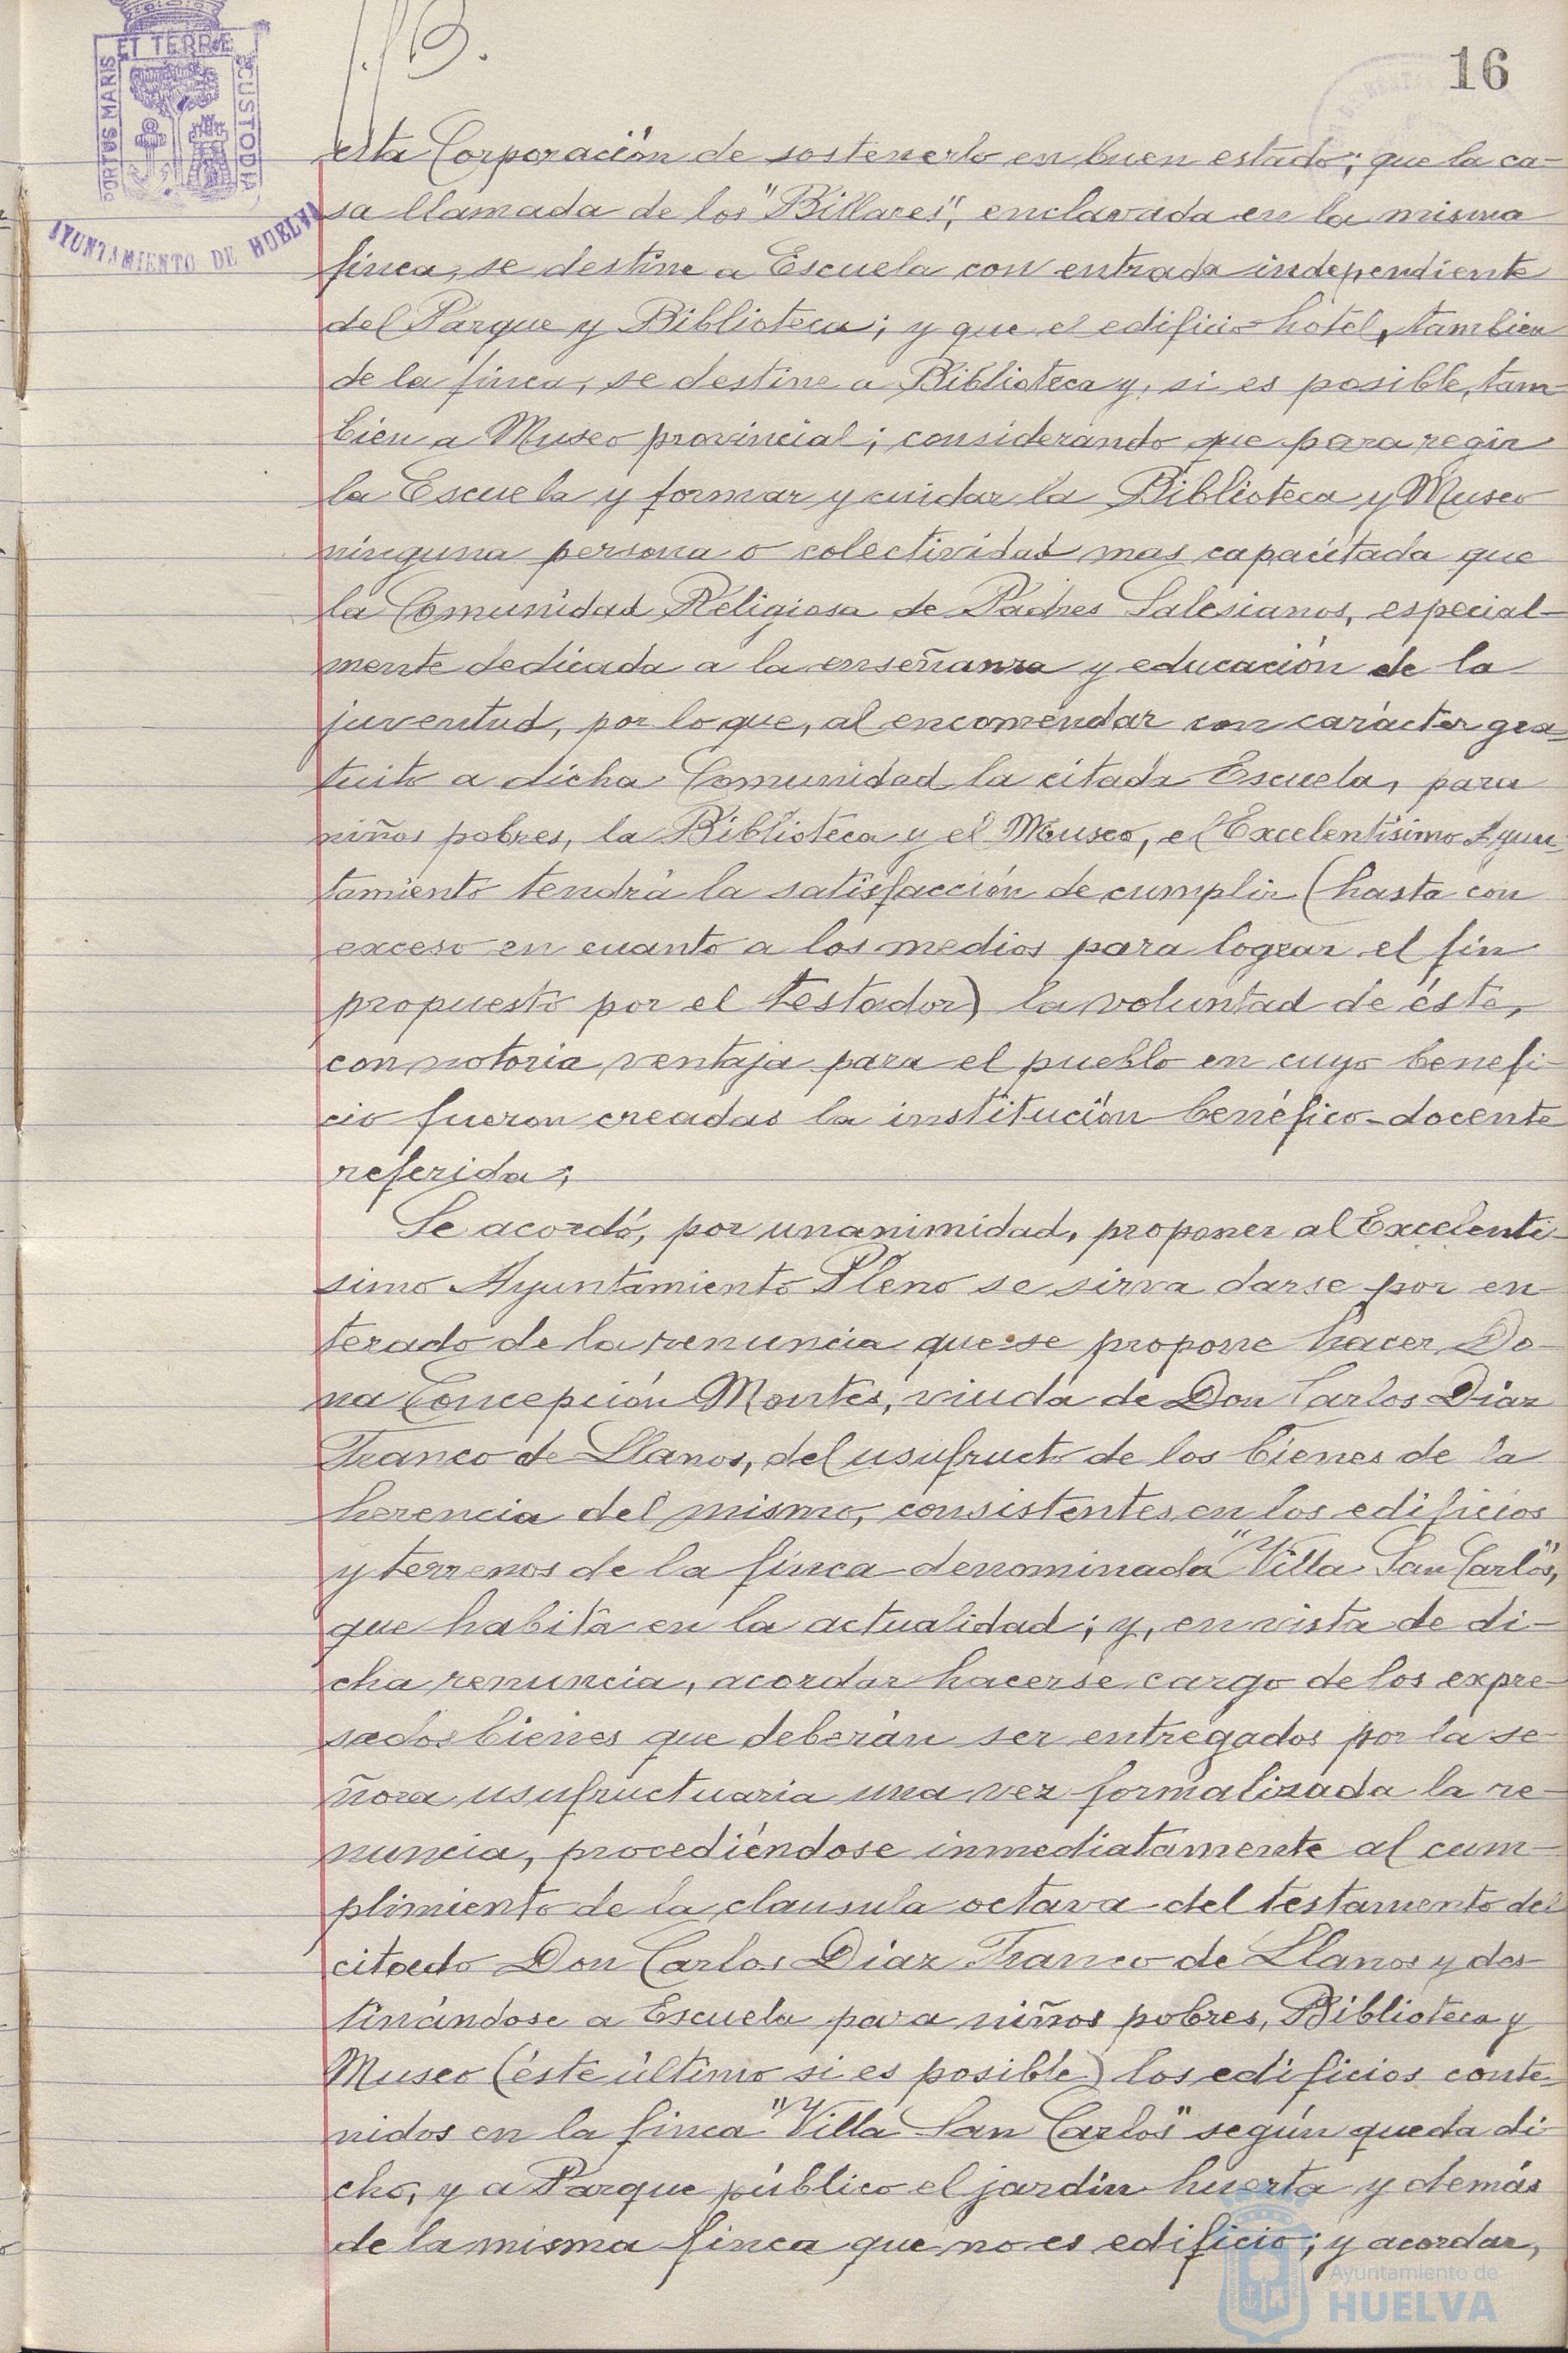 16
PORTUS MARIS ET TERRE CUSTODIA
AYUNTAMIENTO DE HUELVA
esta Corporación de sostenerlo en buen estado; que la ca-
sa llamada de los "Billares", enclavada en la misma
finca, se destine a Escuela con entrada independiente
del Parque y Biblioteca; y que el edificio-hotel, tambien
de la finca, se destine a Biblioteca y, si es posible, tam-
bien a Museo provincial; considerando que para regir
la Escuela y formar y cuidar la Biblioteca y Museo
ninguna persona o colectividad mas capacitada que
la Comunidad Religiosa de Padres Salesianos, especial-
mente dedicada a la enseñanza y educación de la
juventud, por lo que, al encomendar con carácter gra-
tuito a dicha Comunidad la citada Escuela, para
niños pobres, la Biblioteca y el Museo, el Excelentísimo Ayun-
tamiento tendrá la satisfacción de cumplir (hasta con
exceso en cuanto a los medios para lograr el fin
propuesto por el testador) la voluntad de éste,
con notoria ventaja para el pueblo en cuyo benefi-
cio fueron creadas la institución benéfico-docente
referida;
Se acordó, por unanimidad, proponer al Excelentí-
simo Ayuntamiento Pleno se sirva darse por en-
terado de la renuncia que se propone hacer Do-
na Concepción Montes, viuda de Don Carlos Díaz
Franco de Llanos, del usufructo de los bienes de la
herencia del mismo, consistentes en los edificios
y terrenos de la finca denominada "Villa San Carlos",
que habita en la actualidad; y, en vista de di-
cha renuncia, acordar hacerse cargo de los expre-
sados bienes que deberán ser entregados por la se-
ñora usufructuaria una vez formalizada la re-
nuncia, procediéndose inmediatamente al cum-
plimiento de la clausula octava del testamento del
citado Don Carlos Díaz Franco de Llanos y des-
tinándose a Escuela para niños pobres, Biblioteca y
Museo (éste último si es posible) los edificios conte-
nidos en la finca "Villa San Carlos" según queda di-
cho, y a Parque público el jardín huerta y demás
de la misma finca que no es edificio; y acordar,
Ayuntamiento de
HUELVA